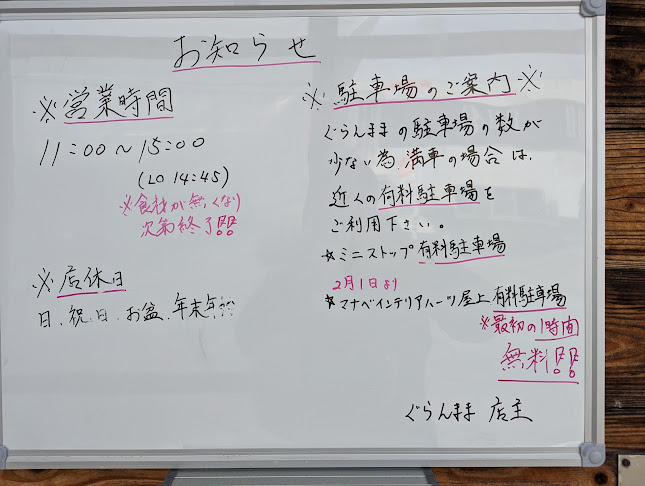 お知らせ
※営業時間
11:00～15:00
(LO 14:45)
※食材が無くなり
次第終了!!
※店休日
日、祝日、お盆、年末年
※駐車場のご案内※
ぐらんままの駐車場の数が
少ない為満車の場合は、
近くの有料駐車場を
ご利用下さい。
☆ミニストップ有料駐車場
2月1日より
☆マナベインテリアハーツ屋上有料駐車場
※最初の1時間
無料!!
ぐらんまま 店主